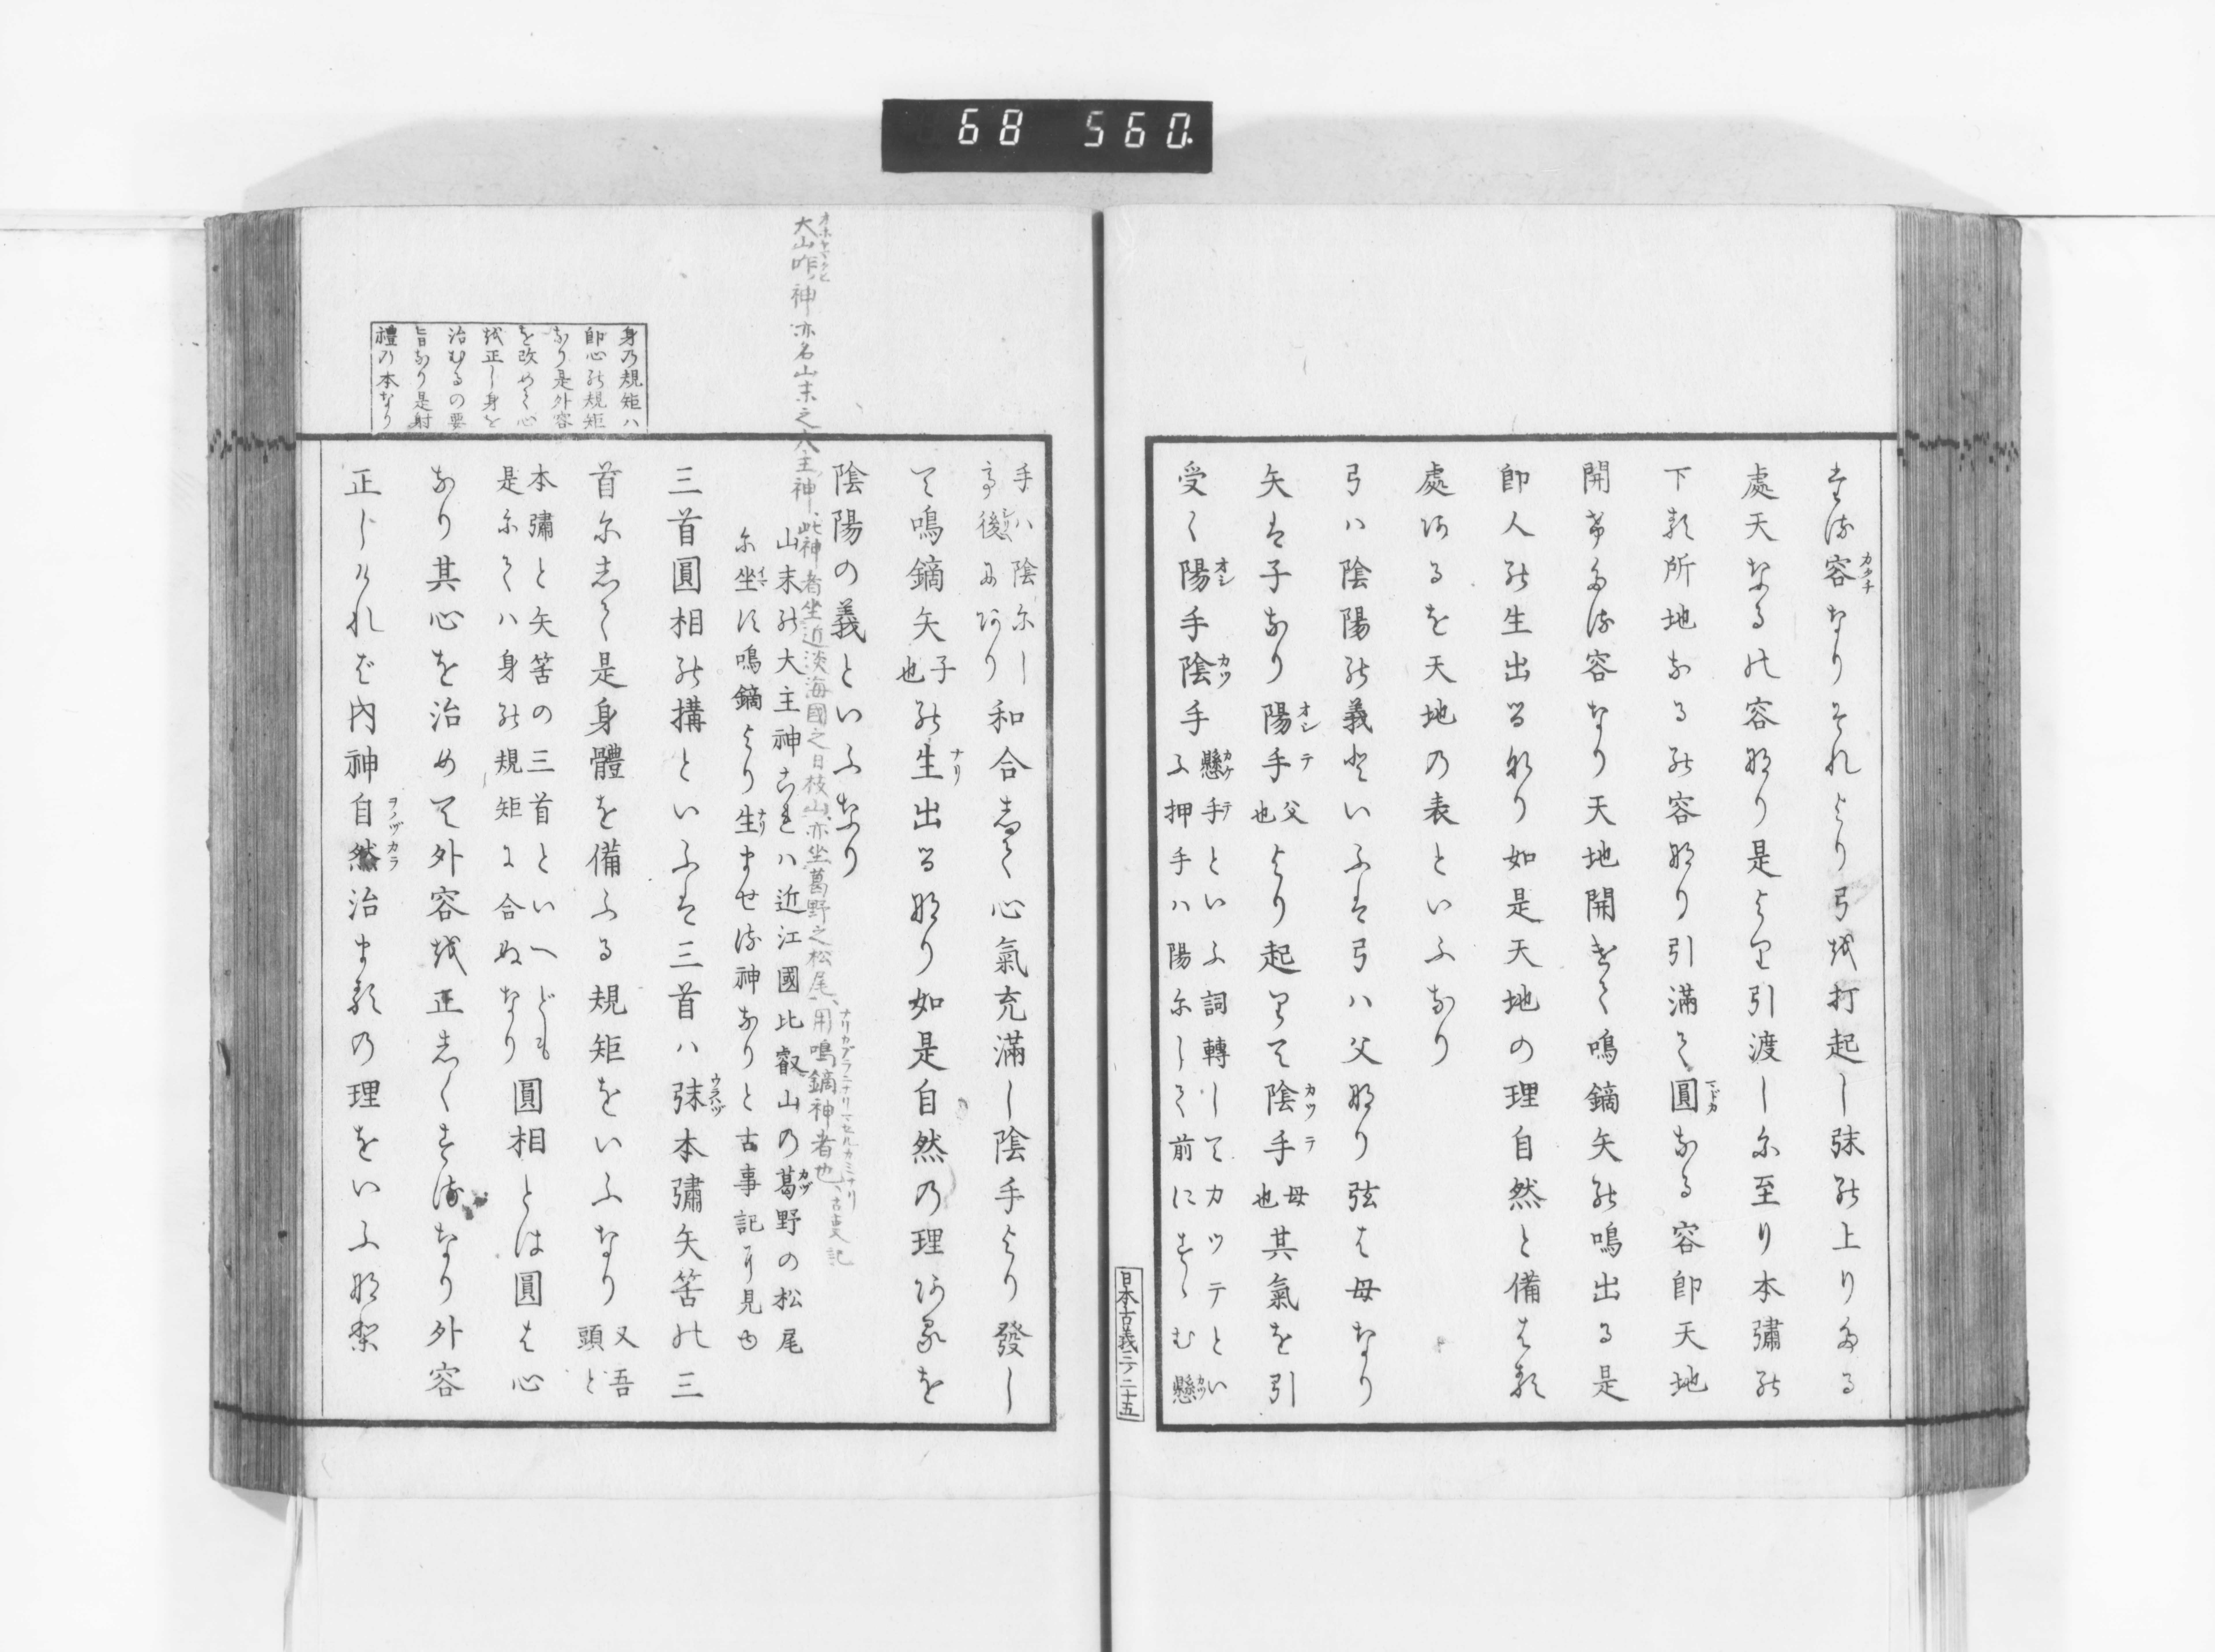 68 560.
たる容なりそれより弓越打起し弭能上りたる
處天なるの容那り是より引渡し尓至り本彇能
下類所地なる能容那り引滿て圓なる容即天地
開希多流容なり天地開きて鳴鏑矢能鳴出る是
即人能生出る那り如是天地の理自然と備は類
處阿るを天地の表といふなり
弓ハ陰陽能義登いふは弓ハ父那り弦は母なり
矢は子なり陽手父也より起りて陰手母也其氣を引
受く陽手陰手懸手といふ詞轉してカツテとい
ふ押手ハ陽尓して前にすゝむ懸
日本古義三ノ二十五
手ハ陰尓し
て後よ阿り和合志て心氣充滿し陰手より發し
て鳴鏑矢子也能生出る那り如是自然の理阿るを
陰陽の義といふなり
山末能大主神これハ近江國比叡山の葛野の松尾
尓坐須鳴鏑より生ませ流神なりと古事記尓見ゆ
三首圓相能搆といふは三首ハ弭本彇矢筈の三
首尓志て是身體を備ふる規矩をいふなり又吾頭と
本彇と矢筈の三首といへども
是尓てハ身能規矩に合ぬなり圓相とは圓は心
なり其心を治めて外容越正志くする なり外容
正しければ内神自然治ま類の理をいふ那梨
身乃規矩ハ
即心能規矩
なり是外容
を改めて心
越正し身を
治むるの要
旨なり是射
禮乃本なり
大山咋神亦名山末之大主神、此神者坐近淡海國之日枝山、亦坐葛野之松尾、用鳴鏑神者也、古事記